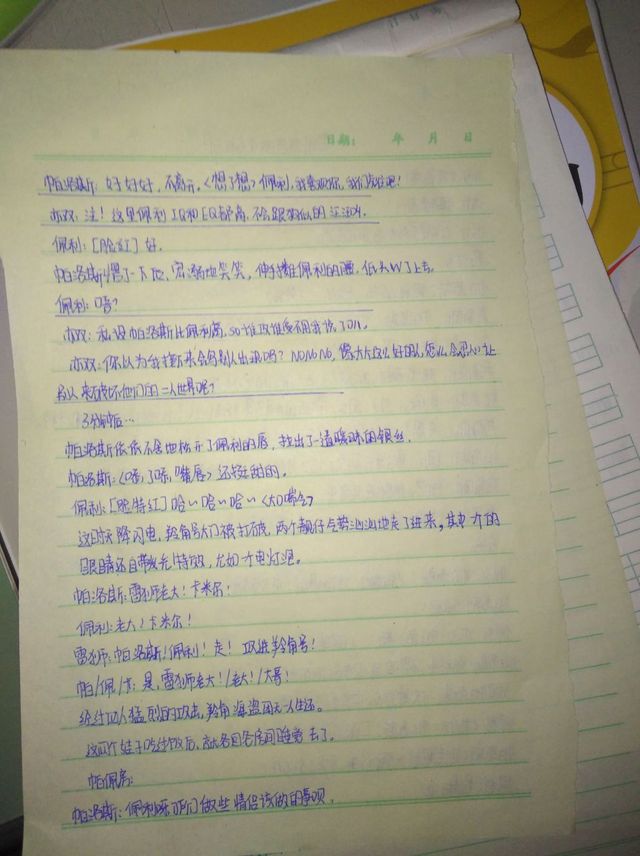 日期： 年 月 日
帕洛斯：好好好，不高兴。<想了想>佩利，我喜欢你，我们交往吧！
亦双：注！这里佩利IQ和EQ都高，不会跟狗似的汪汪叫。
佩利：[脸红]好。
帕洛斯愣了一下下，宠溺地笑笑，伸手搂佩利的腰，低头W了上去。
佩利：唔？
亦双：私设帕洛斯比佩利高，so谁攻谁受不用我说了叭。
亦双：你以为会接下来会有别人出现吗？NONONO，像大大这么好的人怎么会忍心让
别人来破坏他们的二人世界呢？
3分钟后…
帕洛斯依依不舍地松开了佩利的唇，拉出了一道暧昧的银丝。
帕洛斯：<舔了舔嘴唇>还挺甜的。
佩利：[脸特红]哈～哈～哈～<大口喘气>
这时天降闪电，羚角号大门被打破，两个靓仔气势汹汹地走了进来，其中一个的
眼睛还自带发光特效，尤如一个电灯泡。
帕洛斯：雷狮老大！卡米尔！
佩利：老大！卡米尔！
雷狮：帕洛斯！佩利！走！攻进羚角号！
帕/佩/卡：是，雷狮老大！/老大！/大哥！
经过四人猛烈的攻击，羚角海盗团无一人生还。
这四个娃子吃过饭后，就各回各房间睡觉去了。
帕佩房：
帕洛斯：佩利啊咱们做些情侣该做的事呗。